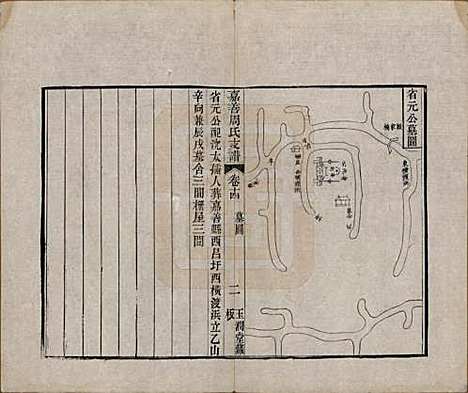 省元公墓圖
嘉善周氏支譜
卷十四
墓圖
二
玉潤堂藏
板
省元公配沈太孺人葬嘉善縣西昌圩西橫渡浜立乙山
辛向兼辰戌墓舍三間柵屋三間